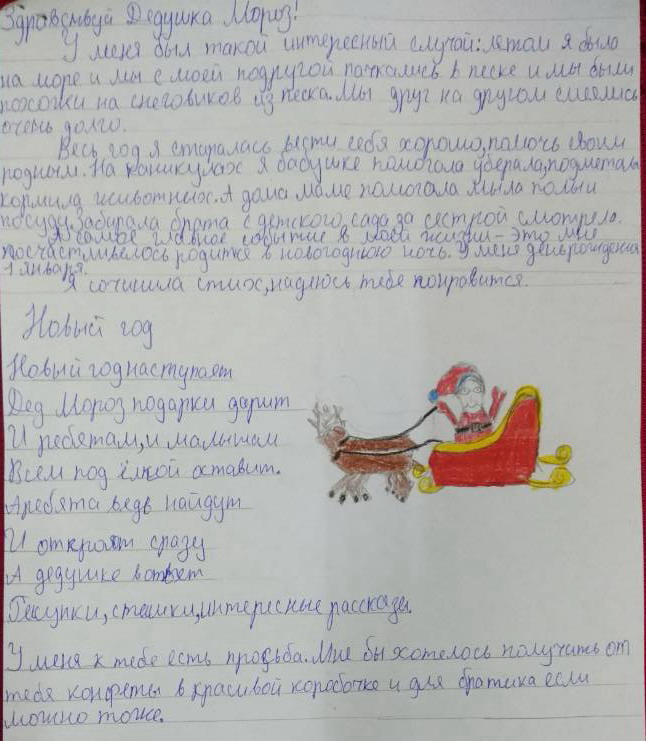 Здравствуй Дедушка Мороз!
У меня был такой интересный случай: летом я была
на море и мы с моей подругой пачкались в песке и мы были
похожи на снеговиков из песка. Мы друг на другом смеялись
очень долго.
Весь год я старалась вести себя хорошо, помочь своим
родным. На каникулах я бабушке помогала уберала, подметала
кормила животных. А дома маме помогала мыла полы и
посуду. Забирала брата с детского, сада, за сестрой смотрела.
А самое главное событие в моей жизни - это мне
посчастливелось родится в новогоднюю ночь. У меня день рождения
1 января.
Я сочинила стих, надеюсь тебе понравится.
Новый год
Новый год наступает
Дед Мороз подарки дарит
И ребятам, и малышам
Всем под ёлкой оставит.
А ребята ведь найдут
И откроют сразу
А дедушке в ответ
Рисунки, стешки, интересные рассказы.
У меня к тебе есть просьба. Мне бы хотелось получить от
тебя конфеты в красивой коробочке и для братика если
можно тоже.